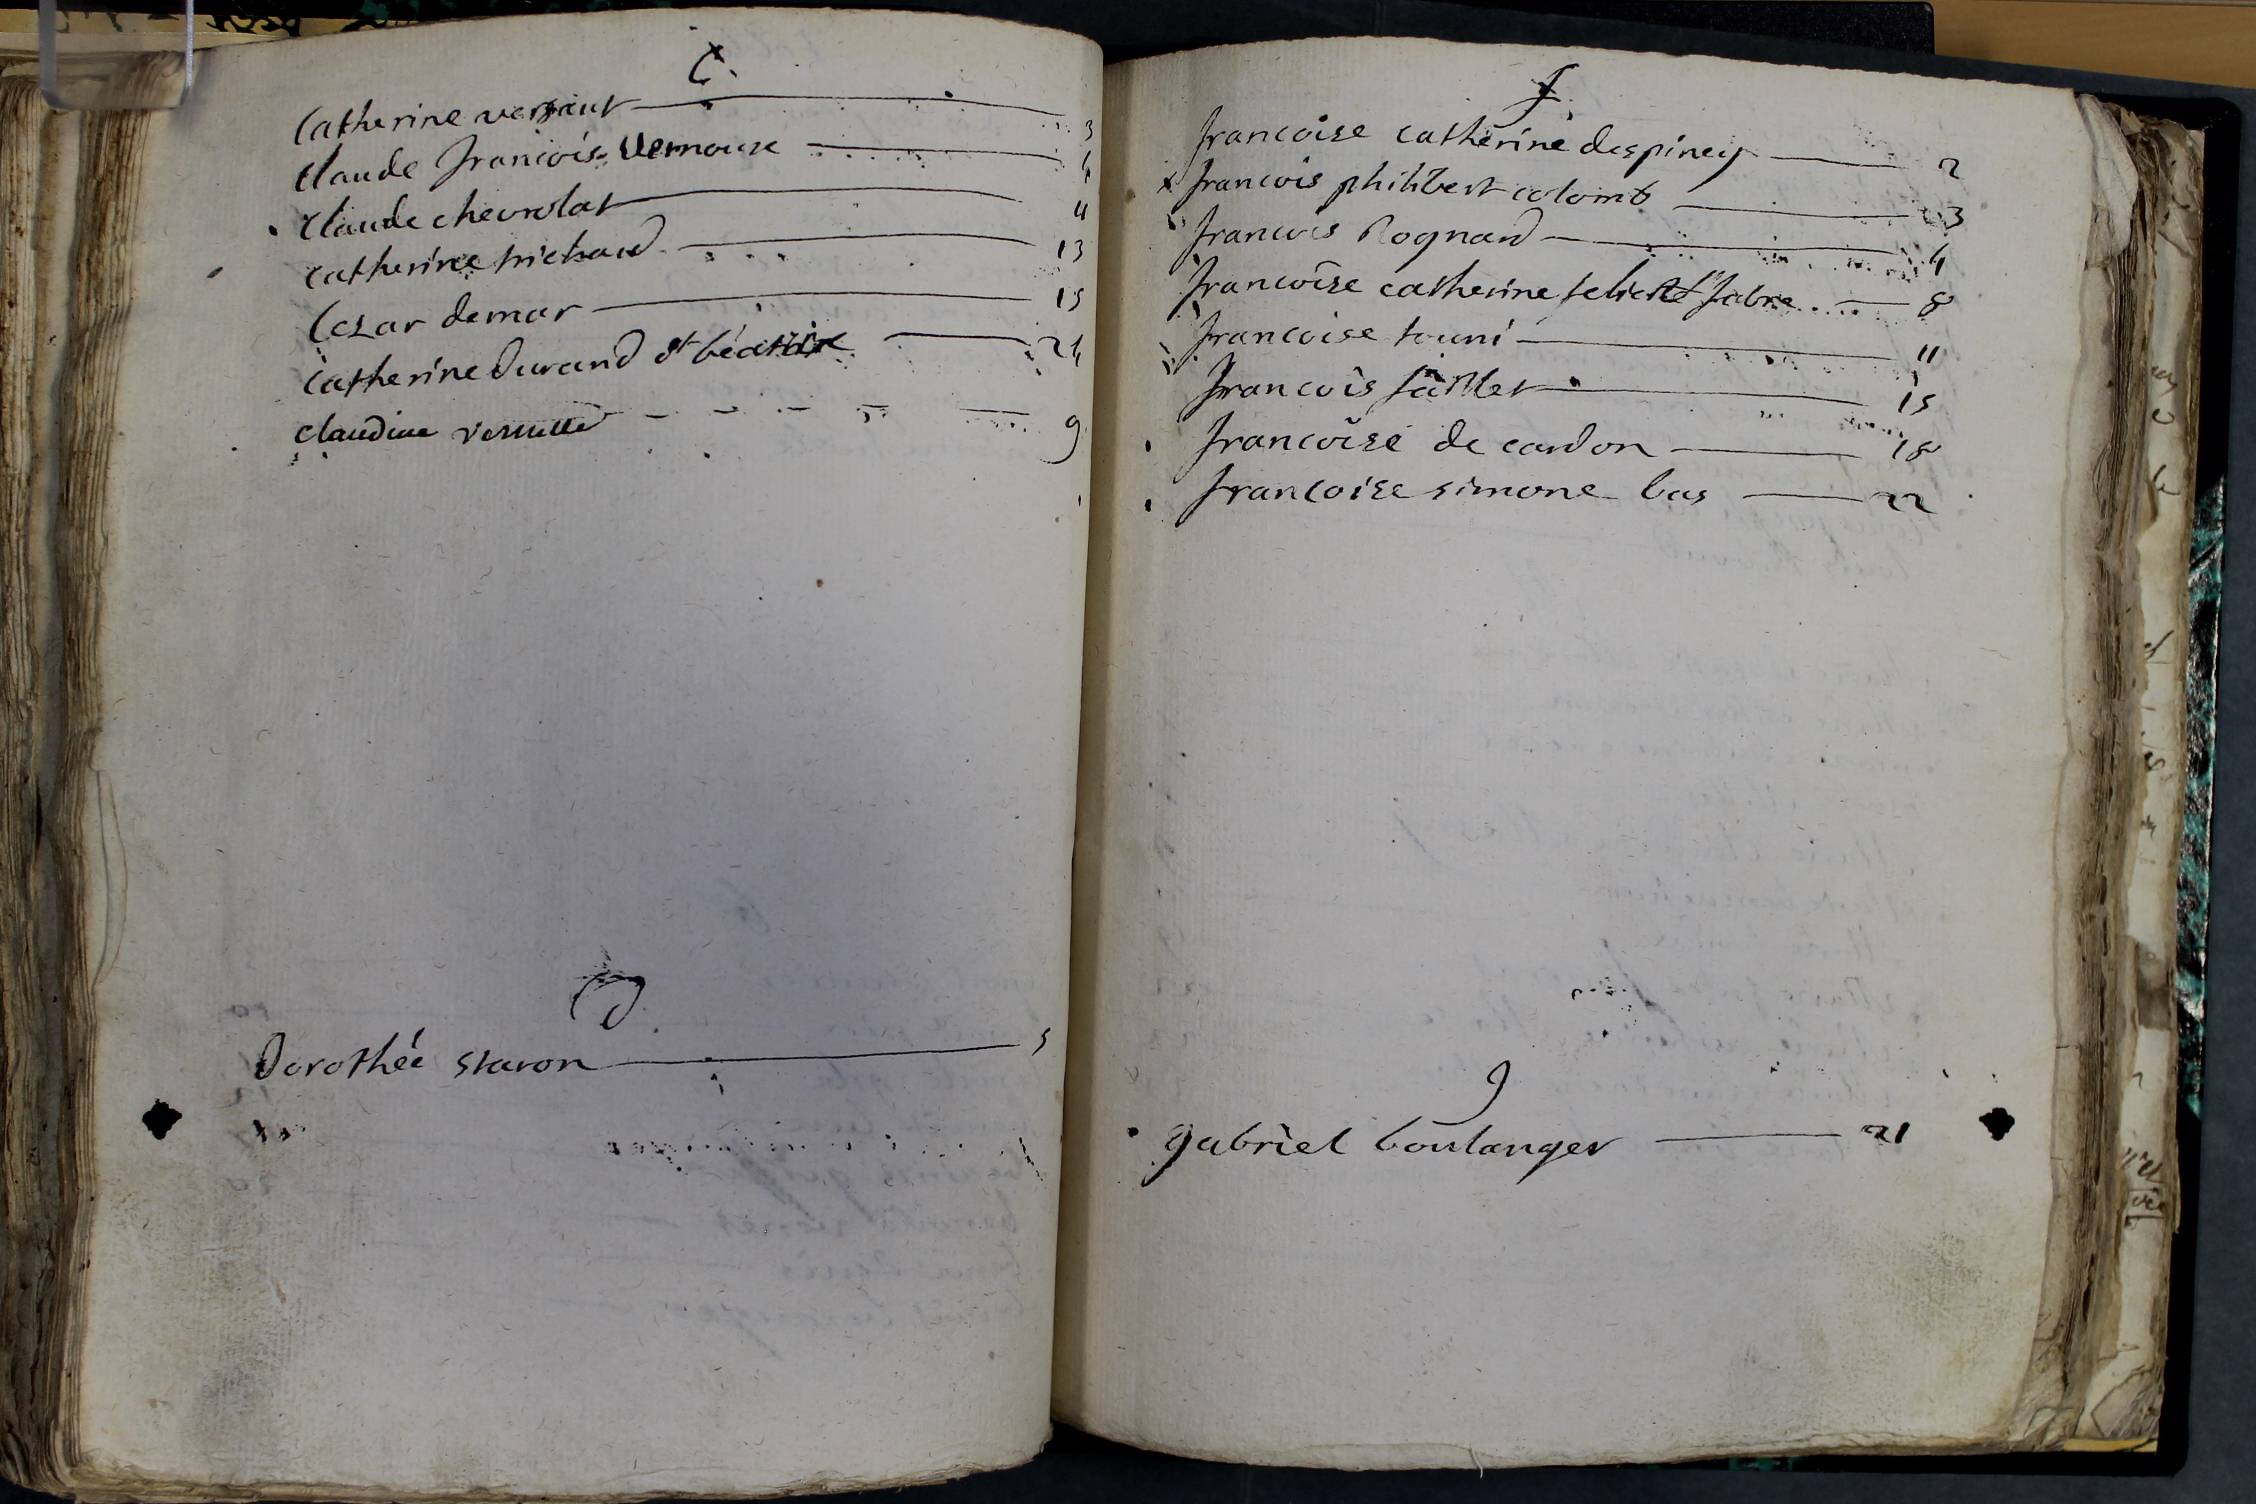 C.
Catherine versaut 3
Claude francois vernouse 4
Claude chevrolat 11
catherine trichaud 13
Cesar demar 15
catherine durand st béatrix 24
claudine vernette 9
D
Dorothée staron 5
f
francoise catherine despiney 2
x francois philibert colomb 3
francois Rognard 4
francoise catherine felicité fabre 8
francoise touni 11
francois faillet 15
francoise de cardon 18
francoise simone bas 22
g
gabriel boulanger 21